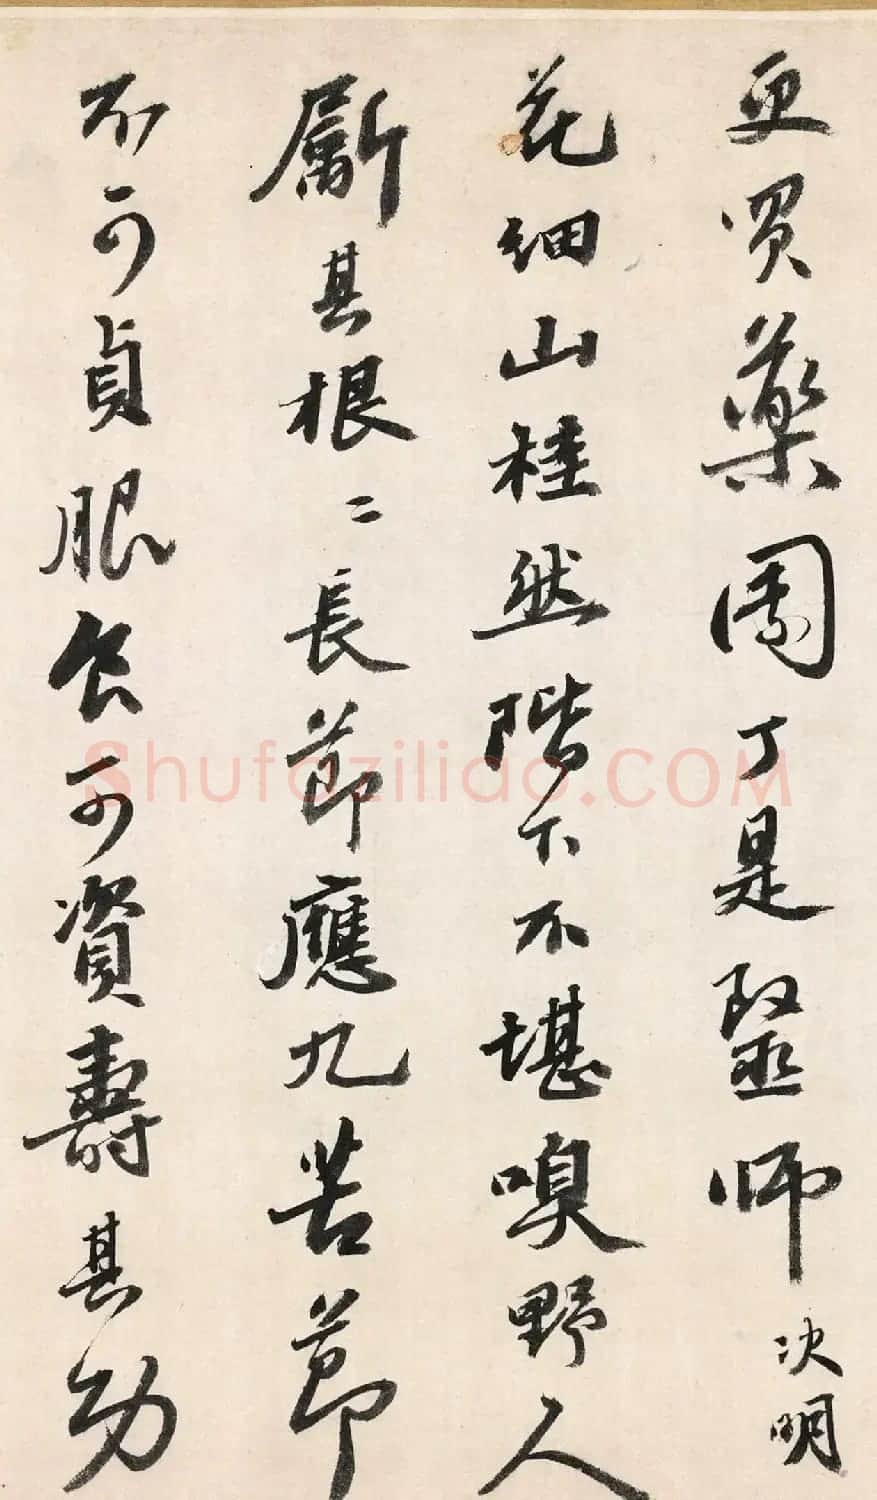 更買藥園丁是毉師決明
花細山桂然階下不堪嗅野人
斸其根〻長節應九苦節
不可貞服食可資壽其功
Shufaziliao.COM